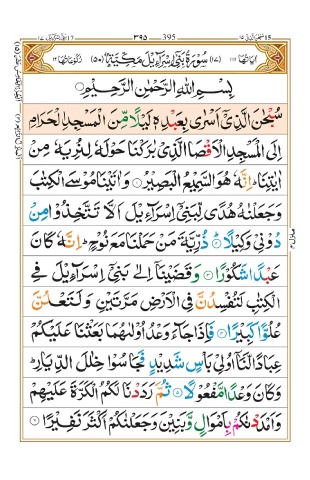 سبحن الذی ۱۵ 395 ۳۹۵ بنی اسراءیل ۱۷
اٰیاتها ۱۱۱ (۱۷) سُوْرَةُ بَنِیْۤ اِسْرَآءِیْلَ مَكِّیَّةٌ (۵۰) رکوعاتها ۱۲
بِسْمِ اللّٰهِ الرَّحْمٰنِ الرَّحِیْمِ
سُبْحٰنَ الَّذِیْۤ اَسْرٰی بِعَبْدِهٖ لَیْلًا مِّنَ الْمَسْجِدِ الْحَرَامِ
اِلَی الْمَسْجِدِ الْاَقْصَا الَّذِیْ بٰرَكْنَا حَوْلَهٗ لِنُرِیَهٗ مِنْ
اٰیٰتِنَا ؕ اِنَّهٗ هُوَ السَّمِیْعُ الْبَصِیْرُ ۱ وَ اٰتَیْنَا مُوْسَی الْكِتٰبَ
وَ جَعَلْنٰهُ هُدًی لِّبَنِیْۤ اِسْرَآءِیْلَ اَلَّا تَتَّخِذُوْا مِنْ
دُوْنِیْ وَكِیْلًا ۲ ذُرِّیَّةَ مَنْ حَمَلْنَا مَعَ نُوْحٍ ؕ اِنَّهٗ كَانَ
عَبْدًا شَكُوْرًا ۳ وَ قَضَیْنَاۤ اِلٰی بَنِیْۤ اِسْرَآءِیْلَ فِی
الْكِتٰبِ لَتُفْسِدُنَّ فِی الْاَرْضِ مَرَّتَیْنِ وَ لَتَعْلُنَّ
عُلُوًّا كَبِیْرًا ۴ فَاِذَا جَآءَ وَعْدُ اُوْلٰىهُمَا بَعَثْنَا عَلَیْكُمْ
عِبَادًا لَّنَاۤ اُولِیْ بَاْسٍ شَدِیْدٍ فَجَاسُوْا خِلٰلَ الدِّیَارِ ؕ
وَ كَانَ وَعْدًا مَّفْعُوْلًا ۵ ثُمَّ رَدَدْنَا لَكُمُ الْكَرَّةَ عَلَیْهِمْ
وَ اَمْدَدْنٰكُمْ بِاَمْوَالٍ وَّ بَنِیْنَ وَ جَعَلْنٰكُمْ اَكْثَرَ نَفِیْرًا ۶